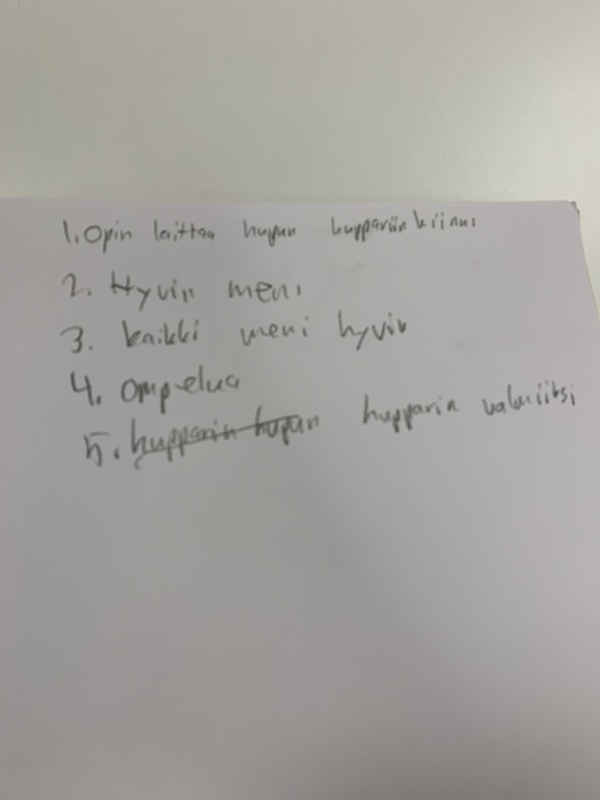 1. Opin laittaa hupun huppariin kiinni
2. Hyvin meni
3. kaikki meni hyvin
4. ompelua
5. hupparin hupun hupparin valmiiksi